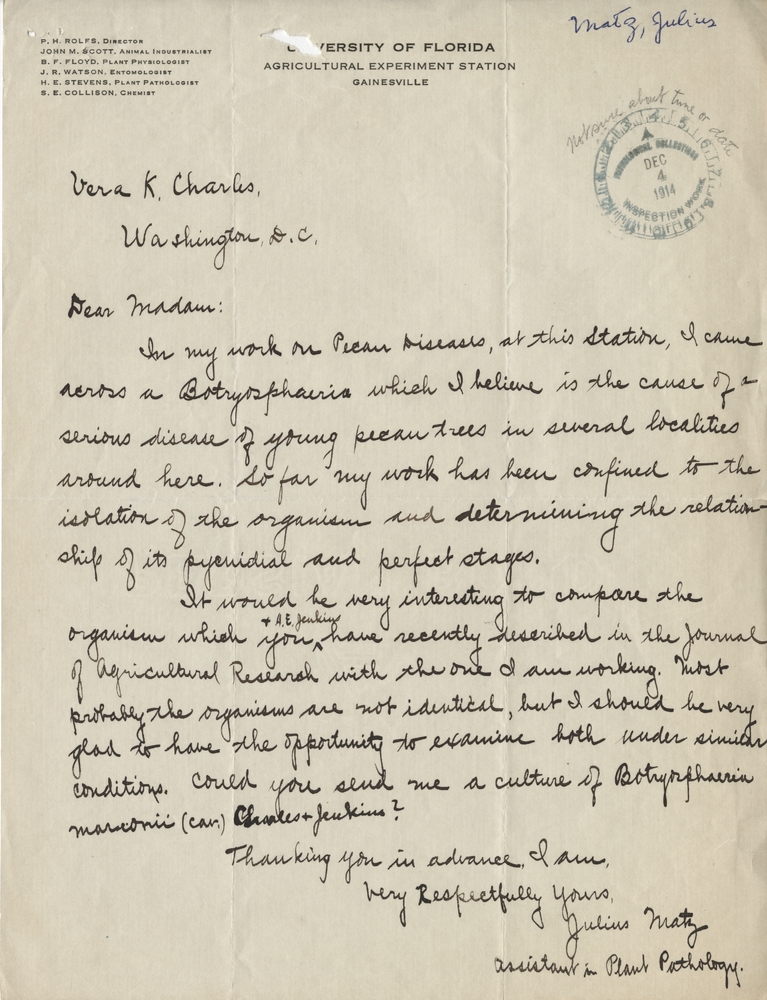 Matz, Julius
P. H. ROLFS, DIRECTOR
JOHN M. SCOTT, ANIMAL INDUSTRIALIST
B. F. FLOYD, PLANT PHYSIOLOGIST
J. R. WATSON, ENTOMOLOGIST
H. E. STEVENS, PLANT PATHOLOGIST
S. E. COLLISON, CHEMIST
U VERSITY OF FLORIDA
AGRICULTURAL EXPERIMENT STATION
GAINESVILLE
Not sure about time or date
PATHOLOGICAL COLLECTIONS
DEC
4
1914
INSPECTION WORK
Vera K. Charles,
Washington, D.C.
Dear Madam:
In my work on Pecan Diseases, at this Station, I came
across a Botryosphaeria which I believe is the cause of a
serious disease of young pecan trees in several localities
around here. So far my work has been confined to the
isolation of the organism and determining the relation-
ship of its pycnidial and perfect stages.
It would be very interesting to compare the
+ A.E. Jenkins
organism which you ^ have recently described in the Journal
of Agricultural Research with the one I am working. Most
probably the organisms are not identical, but I should be very
glad to have the opportunity to examine both under similar
conditions. Could you send me a culture of Botryosphaeria
marconii (cav.) Charles + Jenkins?
Thanking you in advance, I am,
Very Respectfully Yours,
Julius Matz
Assistant in Plant Pathology.